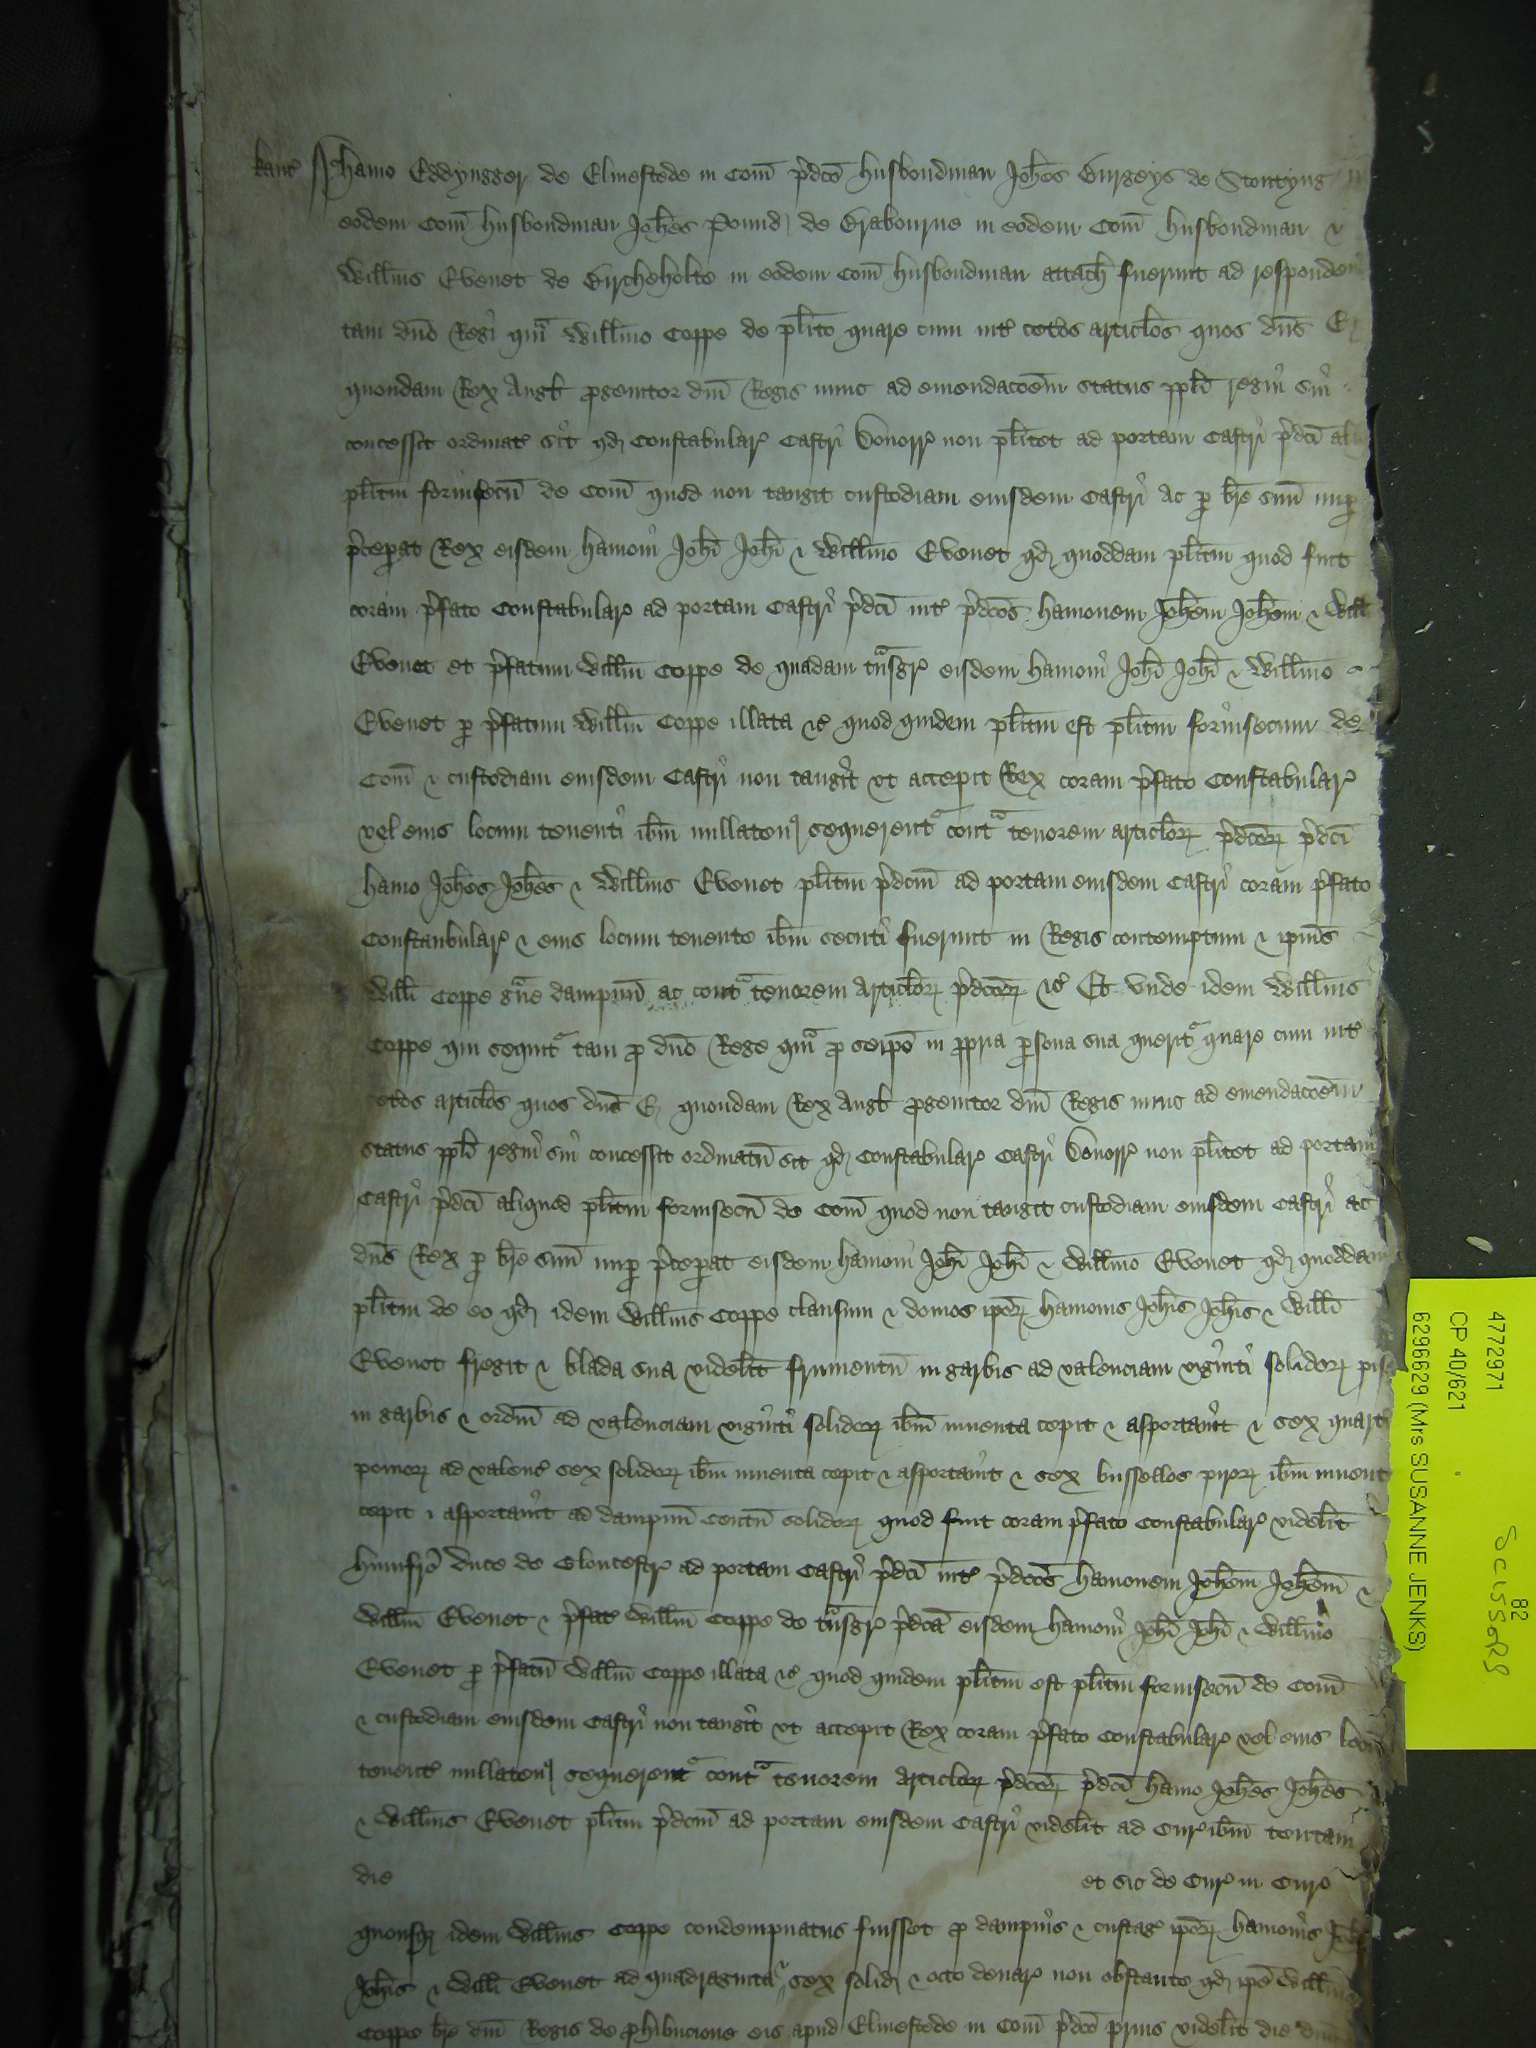 kanc̄ Hamo Eddyngger de Elmestede in Com̄ p̄dc̄o husbondman Joh̄es Burgeys de Stontyng
eodem Com̄ husbondman Joh̄es Pound de Brabourne in eodem Com̄ husbondman &
Will̄ms Evenet de Bircheholte in eodem Com̄ husbondman attach̄ fuerunt ad responden
tam dn̄o Regi qm̄ Will̄mo Coppe de pl̄ito quare cum int̄ cet̄os articl̄os quos dn̄s E
quondam Rex Angl̄ progenitor dn̄i Regis nunc ad emendac̄oem status pp̄li regni sui
concessit ordinat̄ sit qd̄ Constabular̄ Castri Dovorr̄ non pl̄itet ad portam Castri p̄dc̄i
pl̄itm forinsecū de Com̄ quod non tangit custodiam eiusdem Castri Ac p̄ br̄e suū nup̄
p̄cep̄at Rex eisdem Hamoni Joh̄i Joh̄i & Will̄mo Evenet qd̄ quoddam pl̄itm quod fuit
coram p̄fato Constabular̄ ad portam Castri p̄dc̄i int̄ p̄dc̄os Hamonem Joh̄em Joh̄em & Will̄
Evenet et p̄fatum Will̄m Coppe de quadam tn̄sgr̄ eisdem Hamoni Joh̄i Joh̄i & Will̄mo
Evenet p̄ p̄fatum Will̄m Coppe illata &c̄ quod quidem pl̄itm est pl̄itm forinsecum de
Com̄ & custodiam eiusdem Castri non tangit ut accepit Rex coram p̄fato Constabular̄
vel eius locum tenenti ib̄m nullaten⁹ sequerent̄ cont̄ tenorem articl̄oꝝ p̄dc̄oꝝ p̄dc̄i
Hamo Joh̄es Joh̄es & Will̄ms Evenet pl̄itm p̄dc̄m ad portam eiusdem Castri coram p̄fato
Constanbular̄ & eius locum tenente ib̄m secuti fuerunt in Regis contemptum & ip̄ius
Will̄i Coppe gr̄ve dampnū ac cont̄ tenorem Articl̄oꝝ p̄dc̄oꝝ &c̄ Et unde idem Will̄ms
Coppe qui sequit̄ tam p̄ dn̄o Rege qm̄ p̄ seip̄o in propria p̄sona sua querit̄ quare cum int̄
cet̄os articl̄os quos dn̄s E quondam Rex Angl̄ progenitor dn̄i Regis nunc ad emendac̄oem
status pp̄li regni sui concessit ordinatū sit qd̄ Constabular̄ Castri Dovorr̄ non pl̄itet ad portam
Castri p̄dc̄i aliquod pl̄itm forinsecū de Com̄ quod non tangit custodiam eiusdem Castri ac
dn̄s Rex p̄ br̄e suū nup̄ p̄cep̄at eisdem Hamoni Joh̄i Joh̄i & Will̄mo Evenet qd̄ quoddam
pl̄itm de eo qd̄ idem Will̄ms Coppe clausum & domos ip̄oꝝ Hamonis Joh̄is Joh̄is & Will̄i
Evenet fregit & blada sua videl̄t frumentū in garbis ad valenciam viginti solidoꝝ pis
in garbis & ordm̄ ad valenciam viginti solidoꝝ ib̄m inventa cepit & asportavit & sex quart̄
pomoꝝ ad valenc̄ sex solidoꝝ ib̄m inventa cepit & asportavit & sex bussellos piroꝝ ib̄m invent
cepit & asportavit ad dampnū centū solidoꝝ quod fuit coram p̄fato Constabular̄ videl̄t
Humfr̄o Duce de Gloucestr̄ ad portam Castri p̄dc̄i int̄ p̄dc̄os Hamonem Joh̄em Joh̄em &
Will̄m Evenet & p̄fat̄ Will̄m Coppe de tn̄sgr̄ p̄dc̄a eisdem Hamoni Joh̄i Joh̄i & Will̄mo
Evenet p̄ p̄fatū Will̄m Coppe illata &c̄ quod quidem pl̄itm est pl̄itm forinsecū de Com̄
& custodiam eiusdem Castri non tangit ut accepit Rex coram p̄fato Constabular̄ vel eius locū
tenent̄ nullaten⁹ sequerent̄ cont̄ tenorem Articloꝝ p̄dc̄oꝝ p̄dc̄i Hamo Joh̄es Joh̄es
& Will̄ms Evenet pl̄itm p̄dc̄m ad portam eiusdem Castri videl̄t ad Cur̄ ib̄m tentam
die et sic de Cur̄ in Cur̄
quousqꝫ idem Will̄ms Coppe condempnatus fuisset p̄ dampnis & custaḡ ip̄oꝝ Hamonis Joh̄
Joh̄is & Will̄i Evenet ad quadraginta sex solid̄ & octo denar̄ non obstante qd̄ ip̄e Will̄ms
Coppe br̄e dn̄i Regis de prohibucione eis apud Elmestede in Com̄ p̄dc̄o prius videl̄t die
4772971
CP 40/621
6296629 (Mrs SUSANNE JENKS)
82
SCISSORS